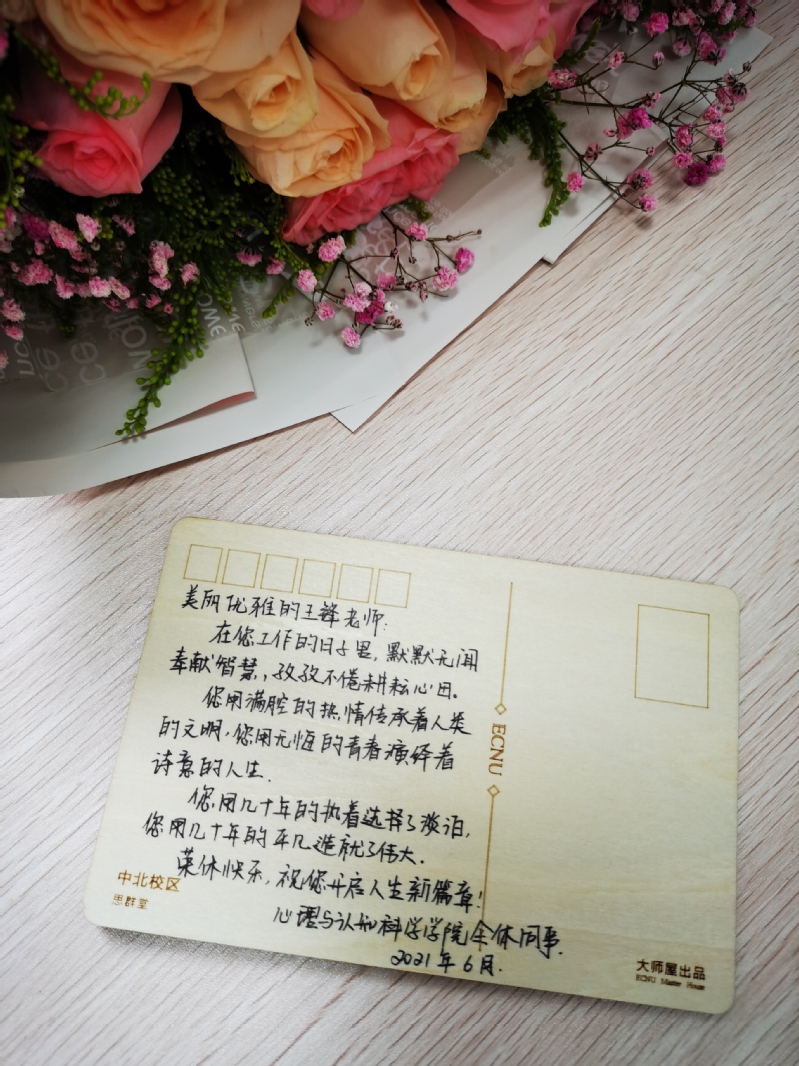 美丽优雅的王锋老师:
在您工作的日子里,默默无闻
奉献智慧,孜孜不倦耕耘心田。
您用满腔的热情传承着人类
的文明,您用无恒的青春演绎着
诗意的人生.
您用几十年的执着选择了淡泊,
您用几十年的平凡造就了伟大.
荣休快乐,祝您开启人生新篇章!
心理与认知科学学院全体同事.
2021年6月.
ECNU
中北校区
思群堂
大师屋出品
ECNU Master House